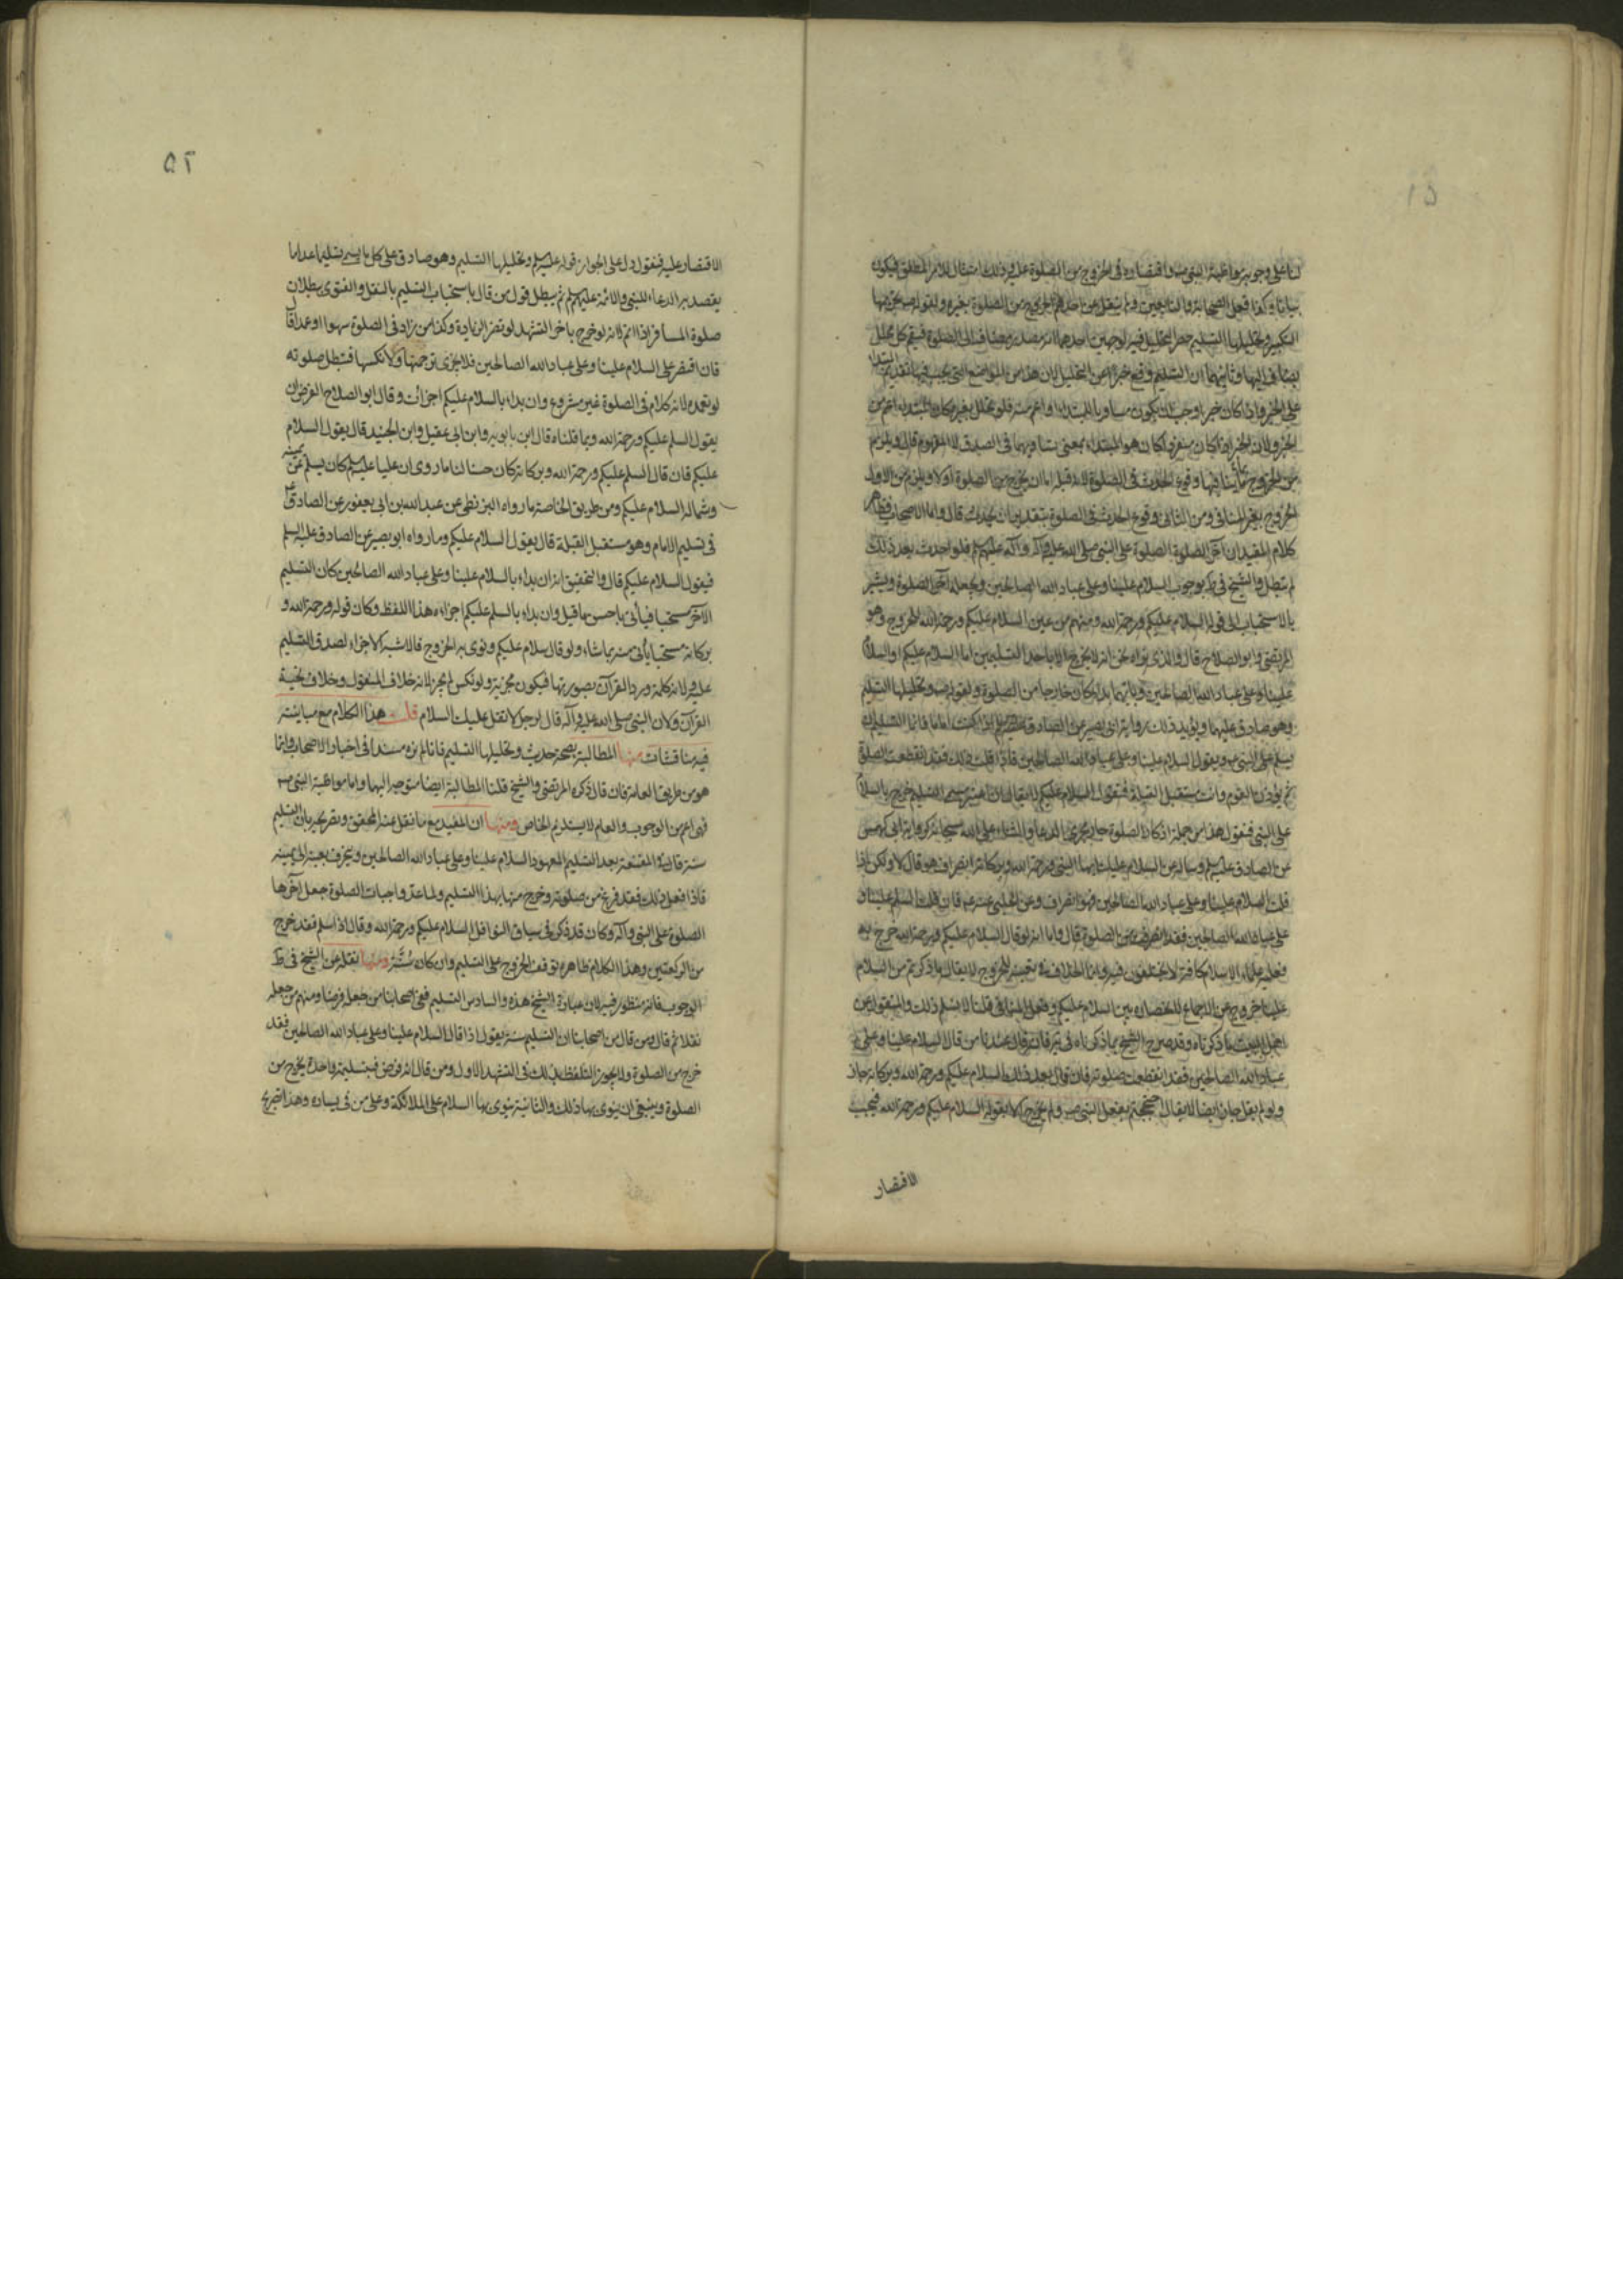 ١٥
لنا على وجوبه مواظبة النبي ص واقتصاره في الخروج من الصلوة عليه وذلك امتثال للامر المطلق فيكون
بيانا وكذا فعل الصحابة والتابعين ولم ينقل عن احدهم الخروج من الصلوة بغيره ولقوله ص تحريمها
التكبير وتحليلها التسليم حصر التحليل فيه لوجهين احدهما انه مصدر مضاف الى الصلوة فيعم كل محلل
يضاف اليها وثانيهما ان التسليم وقع خبرا عن التحليل لان هذا من المواضع التي يجب فيها تقديم المبتداء
على الخبر واذا كان خبرا وجب ان يكون مساويا للمبتداء او اعم منه فلو تحلل بغيره كان المبتداء اعم من
الخبر ولان الخبر اذا كان مفردا كان هو المبتداء بمعنى تساويهما في الصدق لا المفهوم قال ويلزم
من الخروج بما ينافيها وقوع الحدث في الصلوة لانه قبل اما ان يخرج من الصلوة اولا ويلزم من الاول
الخروج بغير المنافي ومن الثاني وقوع الحدث في الصلوة بتقدير ان يحدث قال واما الاصحاب فظاهر
كلام المفيد ان آخر الصلوة الصلوة على النبي صلى الله عليه وآله وآله عليهم فلو احدث بعد ذلك
لم تبطل والشيخ في يه بوجوب السلام علينا وعلى عباد الله الصالحين ويجعله آخر الصلوة ويشير
بالاستحباب الى قول السلام عليكم ورحمة الله ومنهم من عين السلام عليكم ورحمة الله للخروج وهو
المرتضى وابو الصلاح قال والذي نراه نحن انه لا يخرج الا باحد التسليمين اما السلام عليكم او السلام
علينا وعلى عباد الله الصالحين وبايهما بدا كان خارجا من الصلوة ولقوله ص وتحليلها التسليم
وهو صادق عليهما ويؤيد ذلك رواية ابي بصير عن الصادق اذا كنت اماما فانما التسليم ان
تسلم على النبي ص ويقول السلام علينا وعلى عباد الله الصالحين فاذا قلت ذلك فقد انقطعت الصلوة
ثم يؤذن القوم وانت مستقبل القبلة فتقول السلام عليكم لا يقال ان اعتبر مسمى التسليم خرج بالسلام
على النبي فنقول هذا من جملة اذكار الصلوة جار مجرى الدعاء والثناء على الله سبحانه كرواية ابي كهمس
عن الصادق وساله عن السلام عليك ايها النبي ورحمة الله وبركاته انصراف هو قال لا ولكن اذا
قلت السلام علينا وعلى عباد الله الصالحين فهو انصراف وعن الحلبي عنه فان قلت السلم علينا و
على عباد الله الصالحين فقد انصرفت من الصلوة قال واما انه لو قال السلام عليكم ورحمة الله خرج به
فعليه علماء الاسلام كافة لا يختلفون فيه وانما الخلاف في تعينه للخروج لا يقال ما ذكرتم من السلام
علينا خروج عن الاجماع لانحصاره بين السلام عليكم وفعل المنافي قلنا لا نسلم ذلك والمنقول عن
اهل البيت ما ذكرناه وقد صرح الشيخ بما ذكرناه في يب فانه قال عندنا من قال السلام علينا وعلى
عباد الله الصالحين فقد انقطعت صلوته فان قال بعد ذلك السلام عليكم ورحمة الله وبركاته جاز
ولو لم يقل جاز ايضا لا يقال احتججتم بفعل النبي ص ولم يخرج الا بقوله السلام عليكم ورحمة الله فيجب
الاقتصار
٥٢
الاقتصار عليه فنقول دل على الجواز قوله وتحليلها التسليم وهو صادق على كل ما يسمى تسليما عدا ما
يقصد به الدعاء للنبي والائمة عليهم ثم يبطل قول من قال باستحباب التسليم بالنقل والفتوى ببطلان
صلوة المسافر اذا اتم لانه لو خرج باخر التشهد لم تضر الزيادة وكذا من زاد في الصلوة سهوا او عمدا قال
فان اقتصر على السلام علينا وعلى عباد الله الصالحين فلا يجزى ترجمتها ولا نكسها فتبطل صلوته
لو تعمده لانه كلام في الصلوة غير مشروع وان بداء بالسلام عليكم اجزأت وقال ابو الصلاح الفرض ان
يقول السلم عليكم ورحمة الله وبما قلناه قال ابن بابويه وابن ابي عقيل وابن الجنيد قال يقول السلام
عليكم فان قال السلم عليكم ورحمة الله وبركاته كان حسنا لنا ما روى ان عليا كان يسلم عن يمينه
وشماله السلام عليكم ومن طريق الخاصة ما رواه البزنطي عن عبد الله بن ابي يعفور عن الصادق ع
في تسليم الامام وهو مستقبل القبلة قال يقول السلام عليكم وما رواه ابو بصير عن الصادق عليه السلم
فيقول السلام عليكم قال والتحقيق انه ان بداء بالسلام علينا وعلى عباد الله الصالحين كان التسليم
الآخر مستحبا فيأتي باحسن ما قيل وان بداء بالسلم عليكم اجزاءه هذا اللفظ وكان قوله ورحمة الله و
بركاته مستحبا يأتي منه بما شاء ولو قال سلام عليكم ونوى به الخروج فالاشبه الاجزاء لصدق التسليم
عليه ولانه كلمة ورد القرآن بصورتها فيكون مجزية ولو نكس لم يجز لانه خلاف المنقول وخلاف تحية
القرآن ولان النبي صلى الله عليه وآله قال لرجل لا تقل عليك السلام قلت هذا الكلام مع مباينته
فيه مناقشات منها المطالبة بصحة حديث وتحليلها التسليم فانا لم نره مسندا في اخبار الاصحاب وانما
هو من طريق العامة فان قال ذكره المرتضى والشيخ قلنا المطالبة ايضا متوجه اليهما واما مواظبة النبي ص
فهى اعم من الوجوب والعام لا يستلزم الخاص ومنها ان المفيد مع ما نقل عنه المحقق وتصريحه بان التسليم
سنة قال في المقنعة بعد التسليم المعهود السلام علينا وعلى عباد الله الصالحين وينحرف بعينه الى يمينه
فاذا فعل ذلك فقد فرغ من صلوته وخرج منها بهذا التسليم ولما عد واجبات الصلوة جعل آخرها
الصلوة على النبي وآله وكان قد ذكر في سياق النوافل السلام عليكم ورحمة الله وقال اذا سلم فقد خرج
من الركعتين وهذا الكلام ظاهره توقف الخروج على التسليم وان كان سنة ومنها نقله عن الشيخ في ط
الوجوب فانه منظور فيه لان عبارة الشيخ هذه والسادس التسليم ففي اصحابنا من جعله فرضا ومنهم من جعله
نفلا ثم قال ومن قال من اصحابنا ان التسليم سنة يقول اذا قال السلام علينا وعلى عباد الله الصالحين فقد
خرج من الصلوة ولا يجوز التلفظ بذلك في التشهد الاول ومن قال انه فرض فبتسليمة واحدة يخرج من
الصلوة وينبغي ان ينوى بها ذلك والثانية ينوى بها السلام على الملائكة وعلى من في يساره وهذا تصريح